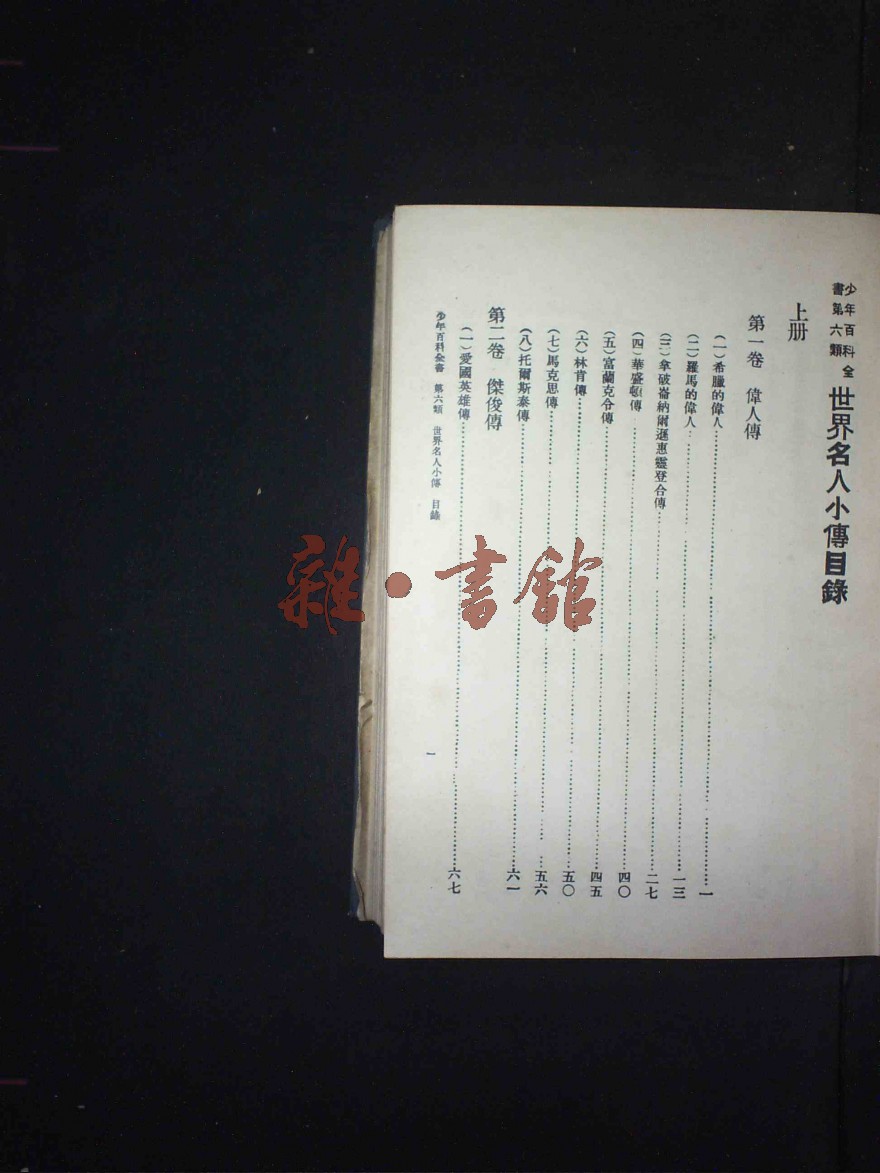 少年百科全
書第六類
世界名人小傳目錄
上册
第一卷 偉人傳
(一)希臘的偉人……一
(二)羅馬的偉人……一三
(三)拿破崙納爾遜惠靈登合傳……二七
(四)華盛頓傳……四〇
(五)富蘭克令傳……四五
(六)林肯傳……五〇
(七)馬克思傳……五六
(八)托爾斯泰傳……六一
第二卷 傑俊傳
(一)愛國英雄傳……六七
少年百科全書 第六類 世界名人小傳 目錄
一
雜·書館